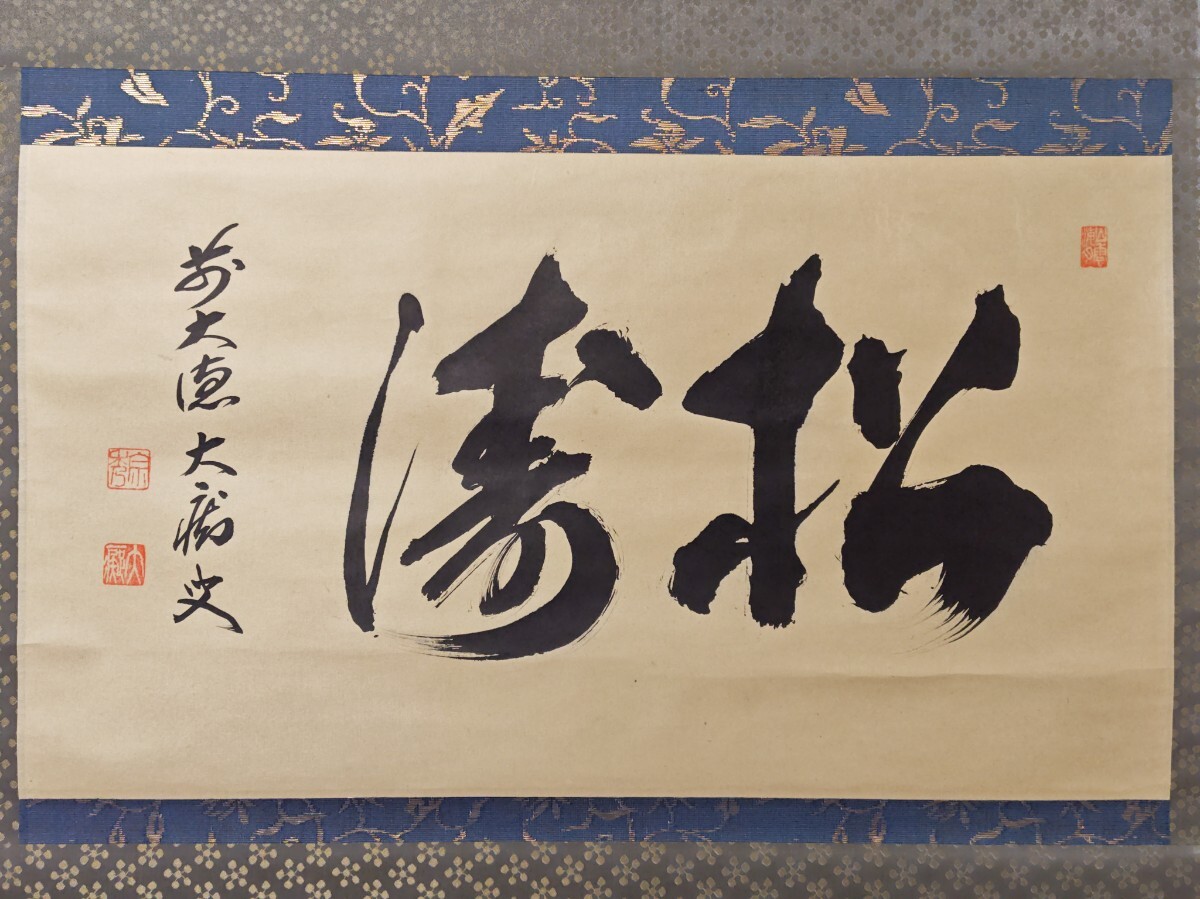 松濤
前大徳大癡叟